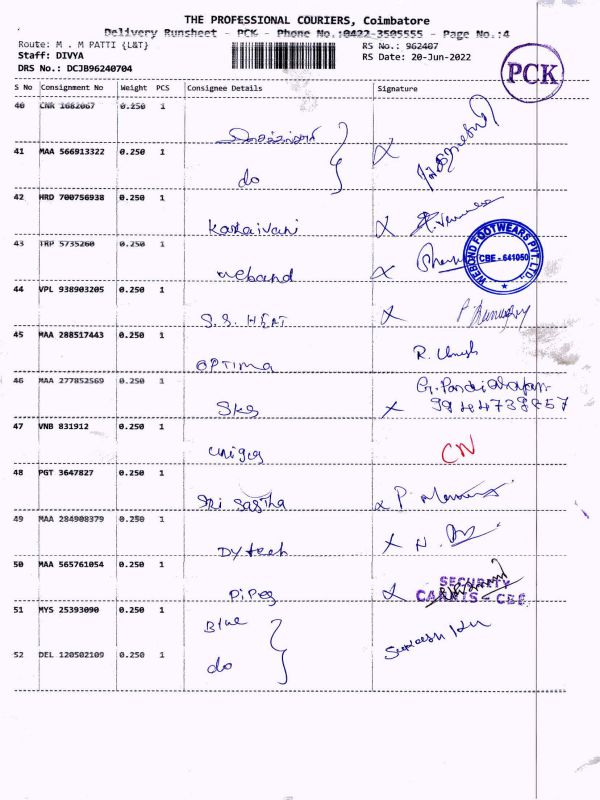 THE PROFESSIONAL COURIERS, Coimbatore
Delivery Runsheet - PCK - Phone No.:0422-3505555 - Page No.:4
Route: M . M PATTI {L&T} RS No.: 962407
Staff: DIVYA RS Date: 20-Jun-2022
DRS No.: DCJB96240704
PCK
S No Consignment No Weight PCS Consignee Details Signature
40 CNR 1682067 0.250 1
41 MAA 566913322 0.250 1
do
42 HRD 700756938 0.250 1
Karkaivani
43 TRP 5735260 0.250 1
Weband
WEBOND FOOTWEARS PVT. LTD.,
CBE - 641050
44 VPL 938903205 0.250 1
S.S. HEAT
45 MAA 288517443 0.250 1
OPTIMA R. Umesh
46 MAA 277852569 0.250 1
SKS
47 VNB 831912 0.250 1
uniges CN
48 PGT 3647827 0.250 1
Sri Sastha
49 MAA 284908379 0.250 1
DY tech
50 MAA 565761054 0.250 1
Pipes SECURITY
51 MYS 25393090 0.250 1
Blue
52 DEL 120502109 0.250 1
do